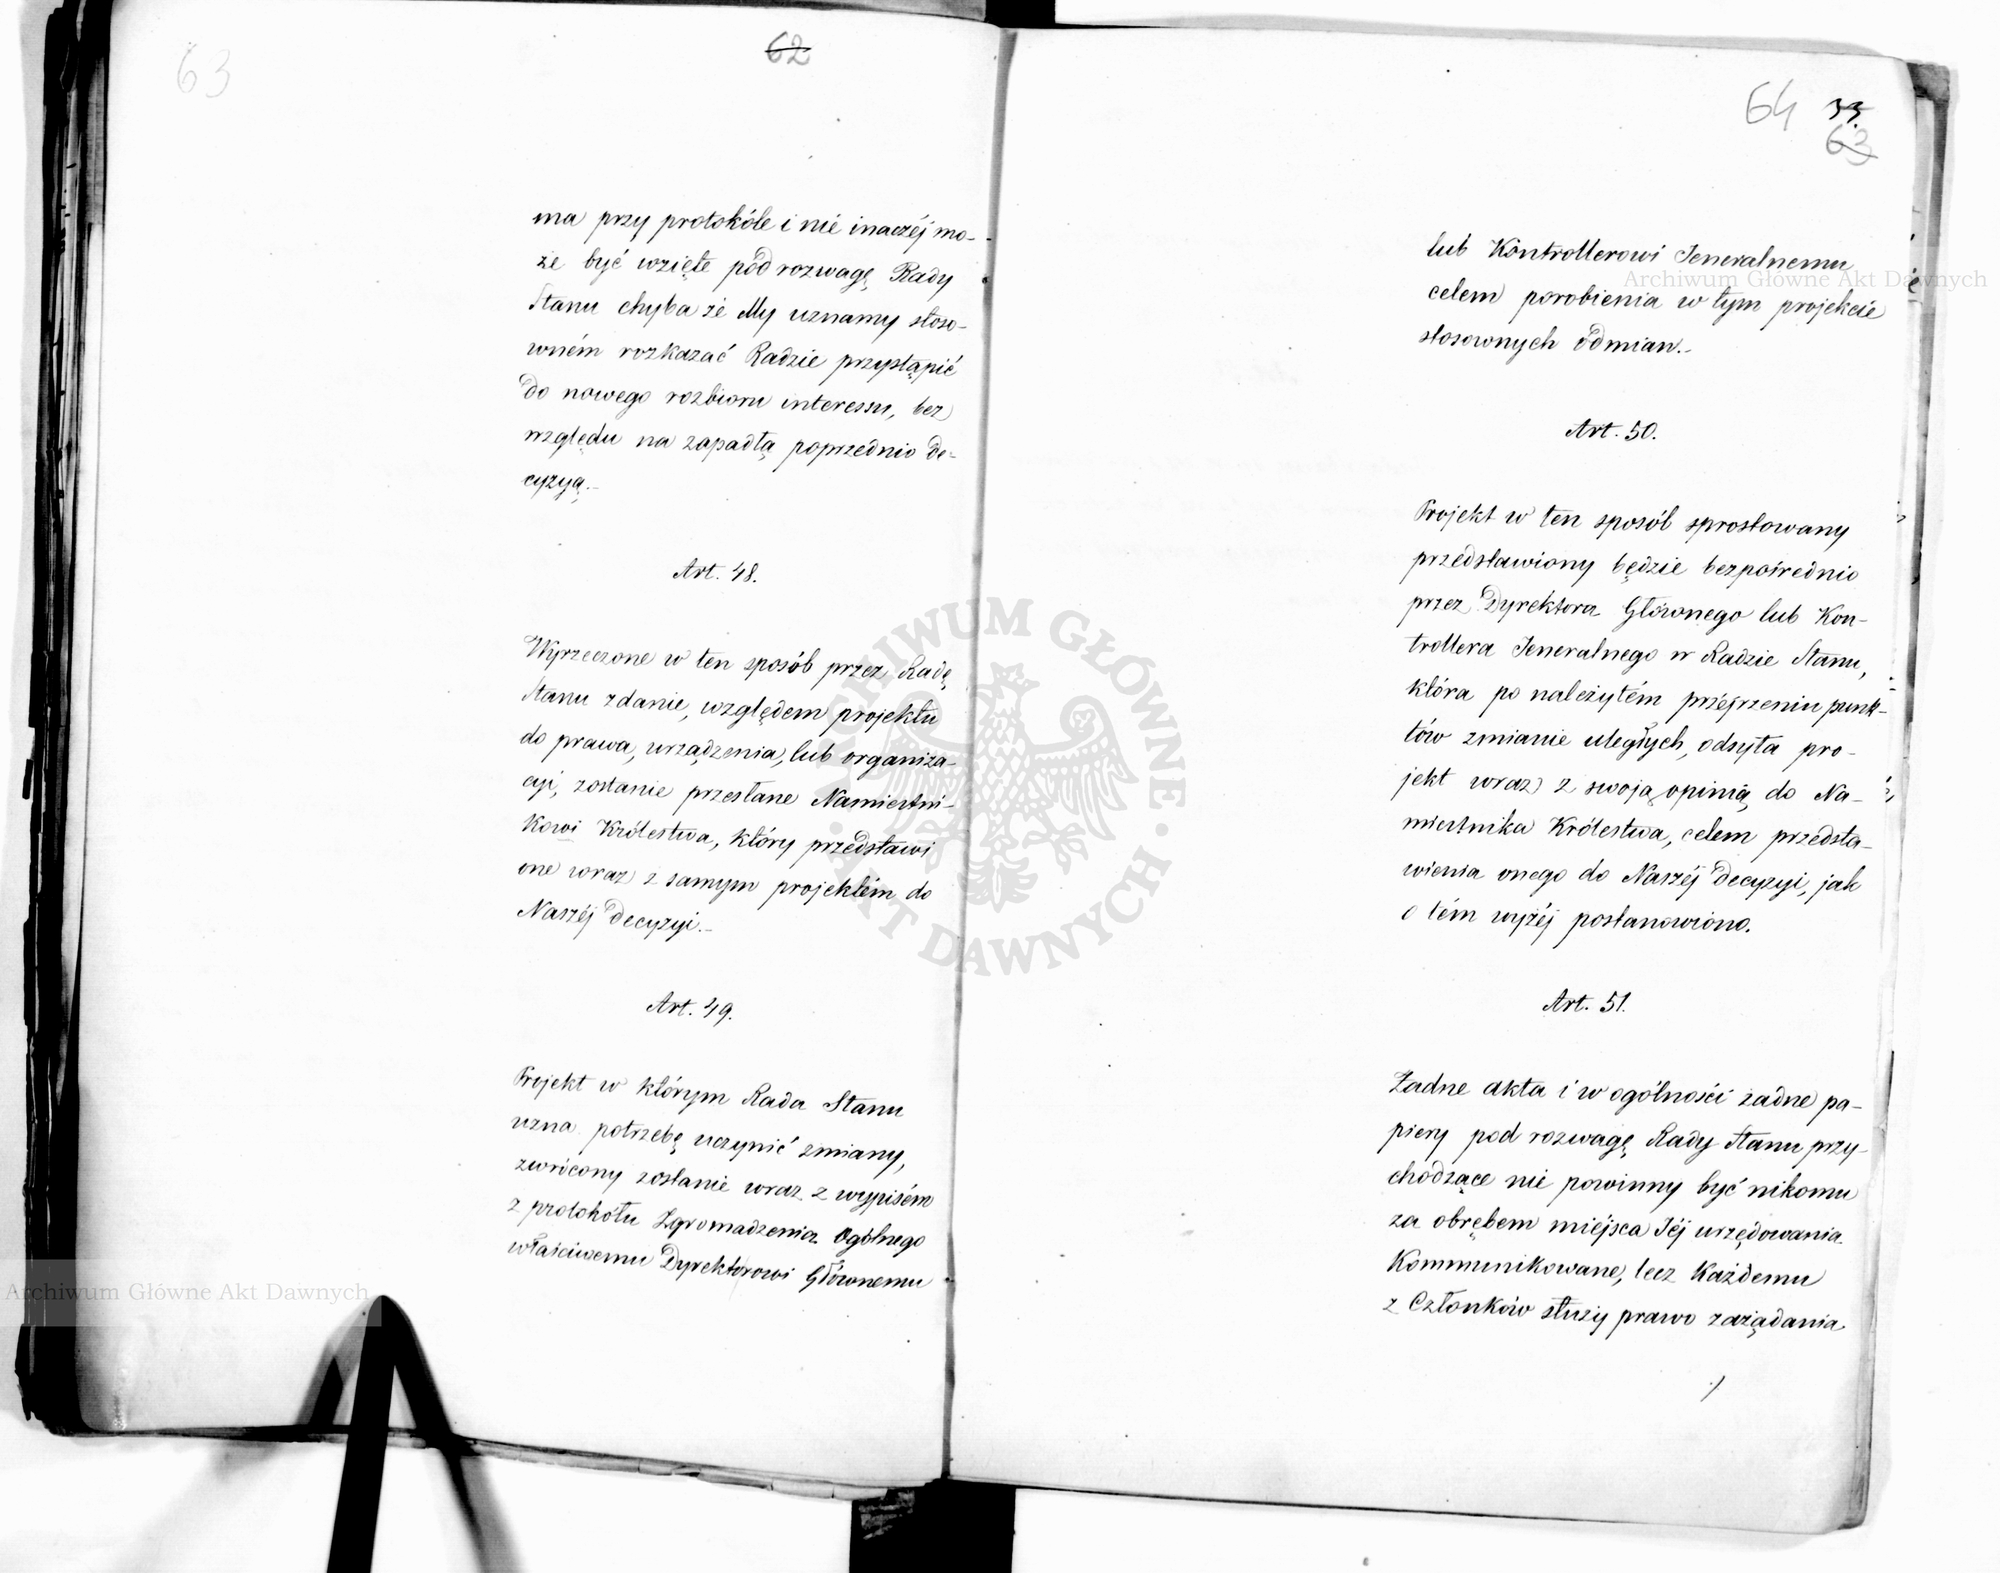 63
62
ma przy protokóle i nié inaczéj mo-
że być wzięte pod rozwagę Rady
Stanu chyba że My uznamy stoso-
wném rozkazać Radzie przystąpić
do nowego rozbioru interessu, bez
względu na zapadłą poprzednio de-
cyzyą.-
Art. 48.
Wyrzeczone w ten sposób przez Radę
Stanu zdanie, względem projektu
do prawa, urządzenia, lub organiza-
cyi, zostanie przesłane Namiestni-
kowi Królestwa, który przedstawi
one wraz z samym projektém do
Naszéj decyzyi.-
Art. 49.
Projekt w którym Rada Stanu
uzna potrzebę uczynić zmiany,
zwrócony zostanie wraz z wypisém
z protokółu Zgromadzenia Ogólnego
właściwemu Dyrektorowi Głównemu
64 33.
63
lub Kontrollerowi Jeneralnemu
celem porobienia w tym projekcie
stosownych odmian.-
Art. 50.
Projekt w ten sposób sprostowany
przedstawiony będzie bezpośrednio
przez Dyrektora Głównego lub Kon-
trollera Jeneralnego w Radzie Stanu,
która po należytém przéjrzeniu punk-
tów zmianie uległych, odsyła pro-
jekt wraz z swoją opinią do Na-
miestnika Królestwa, celem przedsta-
wienia onego do Naszéj decyzyi, jak
o tém wyżéj postanowiono.
Art. 51.
Żadne akta i w ogólności żadne pa-
piery pod rozwagę Rady Stanu przy-
chodzące nie powinny być nikomu
za obrębem miejsca Jéj urzędowania
kommunikowane, lecz każdemu
z Członków służy prawo zażądania
Archiwum Główne Akt Dawnych
Archiwum Główne Akt Dawnych
ARCHIWUM GŁÓWNE
AKT DAWNYCH